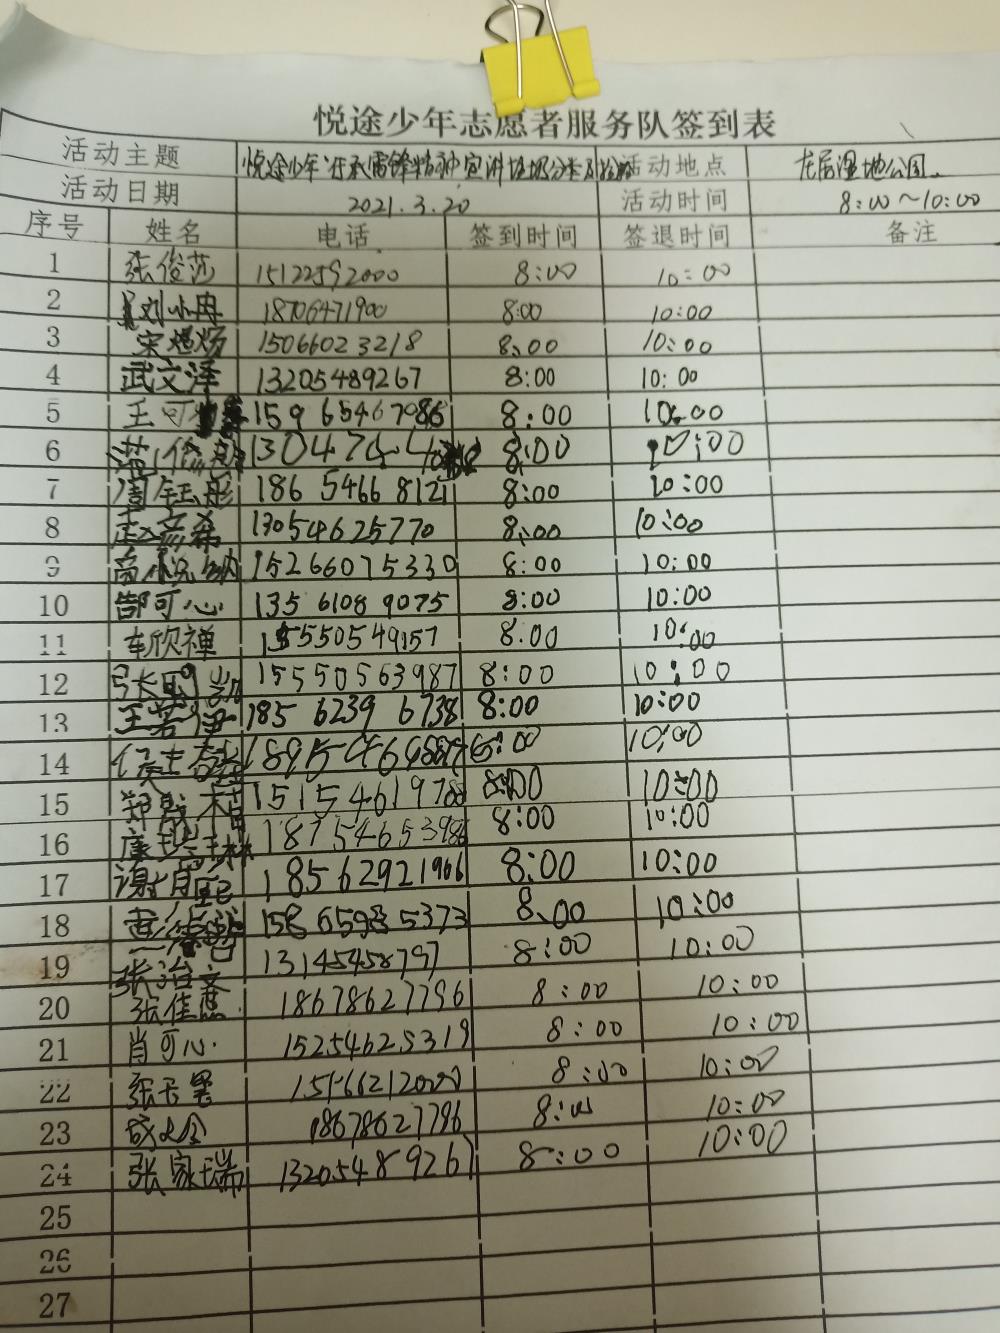 悦途少年志愿者服务队签到表
活动主题 悦途少年 雷锋精神宣讲垃圾分类 活动地点 龙居湿地公园
活动日期 2021.3.20 活动时间 8:00～10:00
序号 姓名 电话 签到时间 签退时间 备注
1 张俊莎 15122592000 8:00 10:00
2 刘小冉 18706471900 8:00 10:00
3 宋 15066023218 8:00 10:00
4 武文泽 13205489267 8:00 10:00
5 王可 15965467986 8:00 10:00
6 8:00 10:00
7 周钰彤 186 5466 8121 8:00 10:00
8 赵彦希 13054625770 8:00 10:00
9 15266075330 8:00 10:00
10 郜可心 135 6108 9075 8:00 10:00
11 车欣禅 15550549157 8:00 10:00
12 15550563987 8:00 10:00
13 王若伊 185 6239 6738 8:00 10:00
14 10:00
15 郑 8:00 10:00
16 康 8:00 10:00
17 谢 18562921966 8:00 10:00
18 158 6598 5373 8:00 10:00
19 张治文 13145458797 8:00 10:00
20 张佳燕 18678627796 8:00 10:00
21 肖可心 15254625319 8:00 10:00
22 张 8:00 10:00
23 18678627796 8:00 10:00
24 张家瑞 13205489267 8:00 10:00
25
26
27